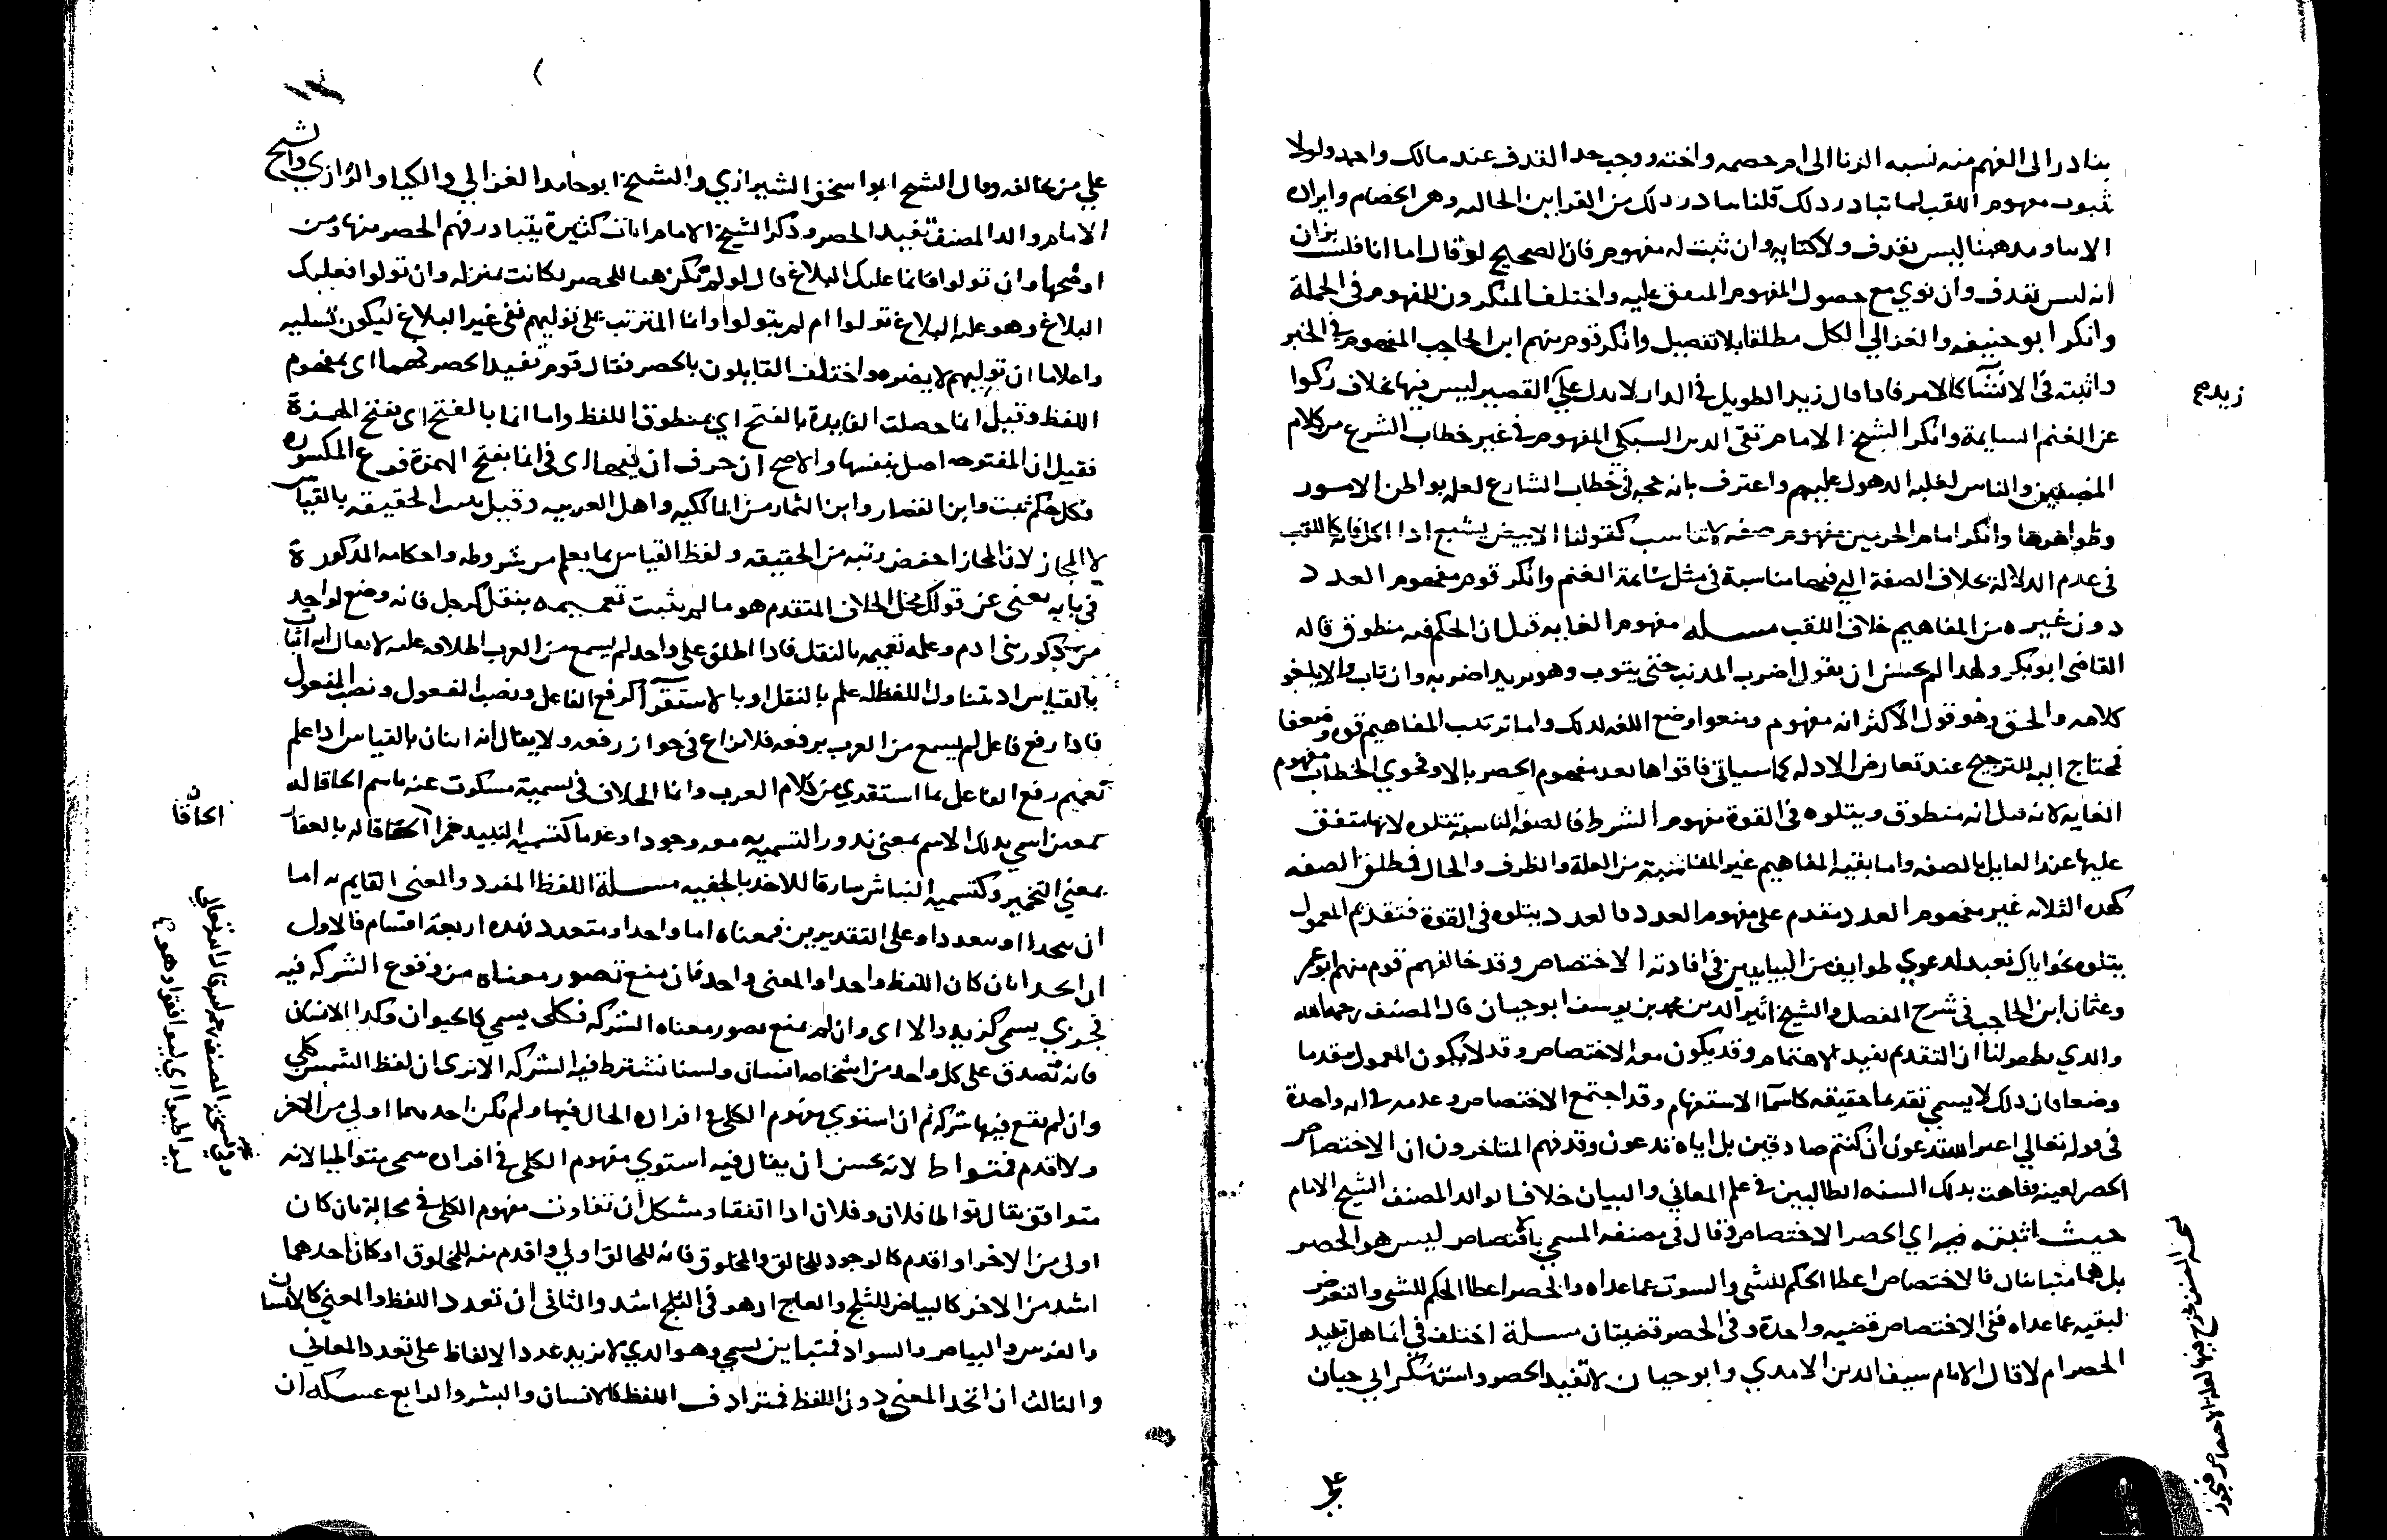 يتبادر الى الفهم منه نسبه الزنا الى ام خصمه واخته ووجب حد القذف عند مالك واحمد ولولا
ثبوت مفهوم اللقب لما تبادر ذلك قلنا تبادر ذلك من القراين الحاليه وهي الخصام وايراد
الايذا ومذهبنا ليس بقذف ولا كنايه وان ثبت له مفهوم فان الصحيح لو قال اما انا فلست بزان
انه ليس بقذف وان نوي مع حصول المفهوم المتفق عليه واختلف المنكرون للمفهوم في الجملة
وانكر ابو حنيفه والغزالي الكل مطلقا بلا تفصيل وانكر قوم منهم ابن الحاجب المفهوم في الخبر
واثبته في الانشا كالامر فاذا قال زيد الطويل في الدار لا يدل علي القصير ليس فيها بخلاف زكوا
عن الغنم السايمة وانكر الشيخ الامام تقي الدين السبكي المفهوم في غير خطاب الشرع من كلام
المصنفين والناس لغلبه الذهول عليهم واعترف بانه حجه في خطاب الشارع لعلمه بواطن الامور
وظواهرها وانكر امام الحرمين مفهوم صفه لا تناسب كقولنا الابيض يشبع اذا اكل فانه كاللقب
في عدم الدلالة بخلاف الصفة التي فيها مناسبة في مثل سايمة الغنم وانكر قوم مفهوم العدد
دون غيره من المفاهيم خلاف اللقب مسله مفهوم الغايه قيل ان الحكم فيه منطوق قاله
القاضى ابو بكر ولهذا لم يحسن ان يقول اضرب المذنب حتى يتوب وهو يريد اضربه وان تاب والا يلغو
كلامه والحق وهو قول الاكثر انه مفهوم ومنعوا وضع اللغه لذلك واما ترتيب المفاهيم قوه وضعفا
فمحتاج اليه للترجيح عند تعارض الادله كما سياتي فاقواها بعد مفهوم الحصر بالا وفحوي الخطاب مفهوم
الغايه لانه قيل انه منطوق ويتلوه في القوة مفهوم الشرط فالصفه المناسبة تتلوه لانها متفق
عليها عند القايل بالصفه واما بقيه المفاهيم غير المناسبة من العلة والظرف والحال فمطلق الصفه
كهذه الثلاثه غير مفهوم العدد مقدم على مفهوم العدد فالعدد يتلوه في القوة فتقديم المعمول
يتلوه نحو اياك نعبد لدعوي طوايف من البيانيين في افادته الاختصاص وقد خالفهم قوم منهم ابو عمر
وعثمان ابن الحاجب في شرح المفصل والشيخ اثير الدين محمد بن يوسف ابو حيان قال المصنف رحمه الله
والذي يظهر لنا ان التقديم يفيد الاهتمام وقد يكون معه الاختصاص وقد لا يكون المعمول مقدما
وضعا فان ذلك لا يسمي تقديما حقيقه كاسما الاستفهام وقد اجتمع الاختصاص وعدمه في ايه واحدة
في قوله تعالي اغير الله تدعون ان كنتم صادقين بل اياه تدعون وقد فهم المتاخرون ان الاختصاص
الحصر لعينه وفاهت بذلك السنه الطالبين في علم المعاني والبيان خلافا لوالد المصنف الشيخ الامام
حيث اثبته اي الحصر الاختصاص وقال في مصنفه المسمي بالاقتصاص ليس هو الحصر
بل هما متباينان فالاختصاص اعطا الحكم للشي والسكوت عما عداه والحصر اعطا الحكم للشي والتعرض
لنفيه عما عداه ففي الاختصاص قضيه واحدة وفي الحصر قضيتان مسلة اختلف في انما هل يفيد
الحصر ام لا قال الامام سيف الدين الامدي وابو حيان لا تفيد الحصر واستنكر ابي حيان
زيد صح
علي
علي من خالفه وقال الشيخ ابو اسحق الشيرازي والشيخ ابو حامد الغزالي والكيا والرازي والشيخ
الامام والد المصنف تفيد الحصر وذكر الشيخ الامام ايات كثيرة يتبادر فهم الحصر منها ومن
اوضحها وان تولوا فانما عليك البلاغ قال لو لم تكن هنا للحصر لكانت بمنزله وان تولوا فعليك
البلاغ وهو عليه البلاغ تولوا ام لم يتولوا وانما المترتب على توليهم نفي غير البلاغ ليكون تسليه
واعلاما ان توليهم لا يضره واختلف القايلون بالحصر فقال قوم تفيد الحصر فهما اى بمفهوم
اللفظ وقيل انما حصلت الفايدة بالفتح اي بمنطوق اللفظ واما انما بالفتح اى بفتح الهمزة
فقيل ان المفتوحه اصل بنفسها والاصح ان حرف ان فيها اى في انما بفتح الهمزة فرع المكسوره
فكل حكم ثبت وابن القصار وابن التمار من المالكيه واهل العربيه وقيل يثبت الحقيقه بالقياس
لا المجاز لان المجاز اخفض رتبه من الحقيقه ولفظ القياس بما يعلم من شروطه واحكامه المذكورة
في بابه يغني عن قولك محل الخلاف المتقدم هو ما لم يثبت تعميمه بنقل كرجل فانه وضع لواحد
من ذكور بني ادم وعلم تعميمه بالنقل فاذا اطلق على واحد لم يسمع من العرب اطلاقه عليه لا يقال انه اثبات
بالقياس اذ تناول اللفظ له علم بالنقل او بالاستقرا كرفع الفاعل ونصب المفعول ونصب المفعول
فاذا رفع فاعل لم يسمع من العرب برفعه فلا نزاع في جواز رفعه ولا يقال انه اثبات بالقياس اذا علم
تعميم رفع الفاعل بما استقري من كلام العرب وانما الخلاف في تسمية مسكوت عنه باسم الحاقا له
بمعنى اسمي بذلك الاسم بمعنى تدور التسميه معه وجودا وعدما كتسميه النبيذ خمرا الحاقا له بالعقار
بمعني التخمير وكتسميه النباش سارقا للاخذ بالخفيه مسلة اللفظ المفرد والمعنى القايم به اما
ان يتحدا او يتعددا وعلى التقديرين فمعناه اما واحد او متعدد فهذه اربعة اقسام فالاول
ان اتحدا بان كان اللفظ واحدا والمعنى واحد فان منع تصور معناه من وقوع الشركه فيه
فجزي يسمى كزيد والا اى وان لم يمنع تصور معناه الشركه فكلى يسمي كالحيوان وكذا الانسان
فانه تصدق على كل واحد من اشخاصه انسان ولسنا نشترط فيه الشركه الا ترى ان لفظ الشمس كلي
وان لم يقع فيها شركه ثم ان استوي مفهوم الكلى في افراده الحال فيها ولم يكن احدهما اولى من الاخر
ولا اقدم فمتواط لانه يحسن ان يقال فيه استوي مفهوم الكلى في افراده سمى متواطيا لانه
متوافق يقال تواطا فلان وفلان اذا اتفقا ومشكل ان تفاوت مفهوم الكلى في محاله بان كان
اولى من الاخر او اقدم كالوجود للخالق والمخلوق فانه للخالق اولي واقدم منه للمخلوق او كان احدهما
اشد من الاخر كالبياض للثلج والعاج اذ هو في الثلج اشد والثاني ان تعدد اللفظ والمعني كالانسان
والفرس والبياض والسواد فمتباين يسمي وهو الذي لا يزيد عدد الالفاظ على تعدد المعاني
والثالث ان اتحد المعنى دون اللفظ فمترادف اللفظ كالانسان والبشر والرابع عكسه ان
الحاقا